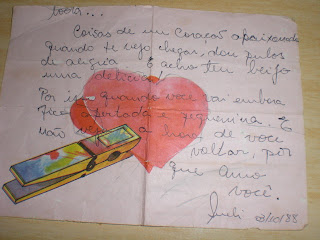 Coisas de um coração apaixonado
quando te vejo chegar, dou pulos
de alegria E acho teu beijo
uma delicia!
Por isso quando você vai embora
fico apertado e pequenina. E
não vejo a hora de você
voltar, por
que amo
você.
Sueli 23/10/88